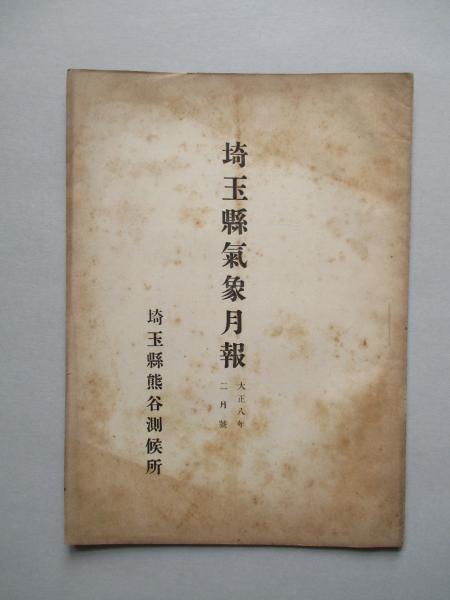 埼玉縣氣象月報
大正八年
二月號
埼玉縣熊谷測候所